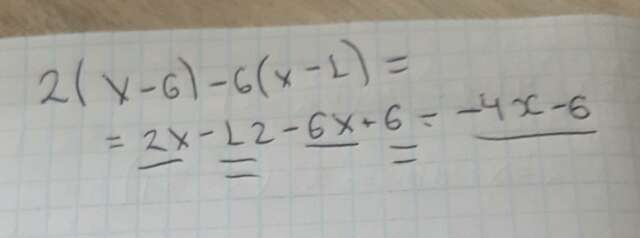 2(x-6)-6(x-1)=
=2x-12-6x+6=-4x-6